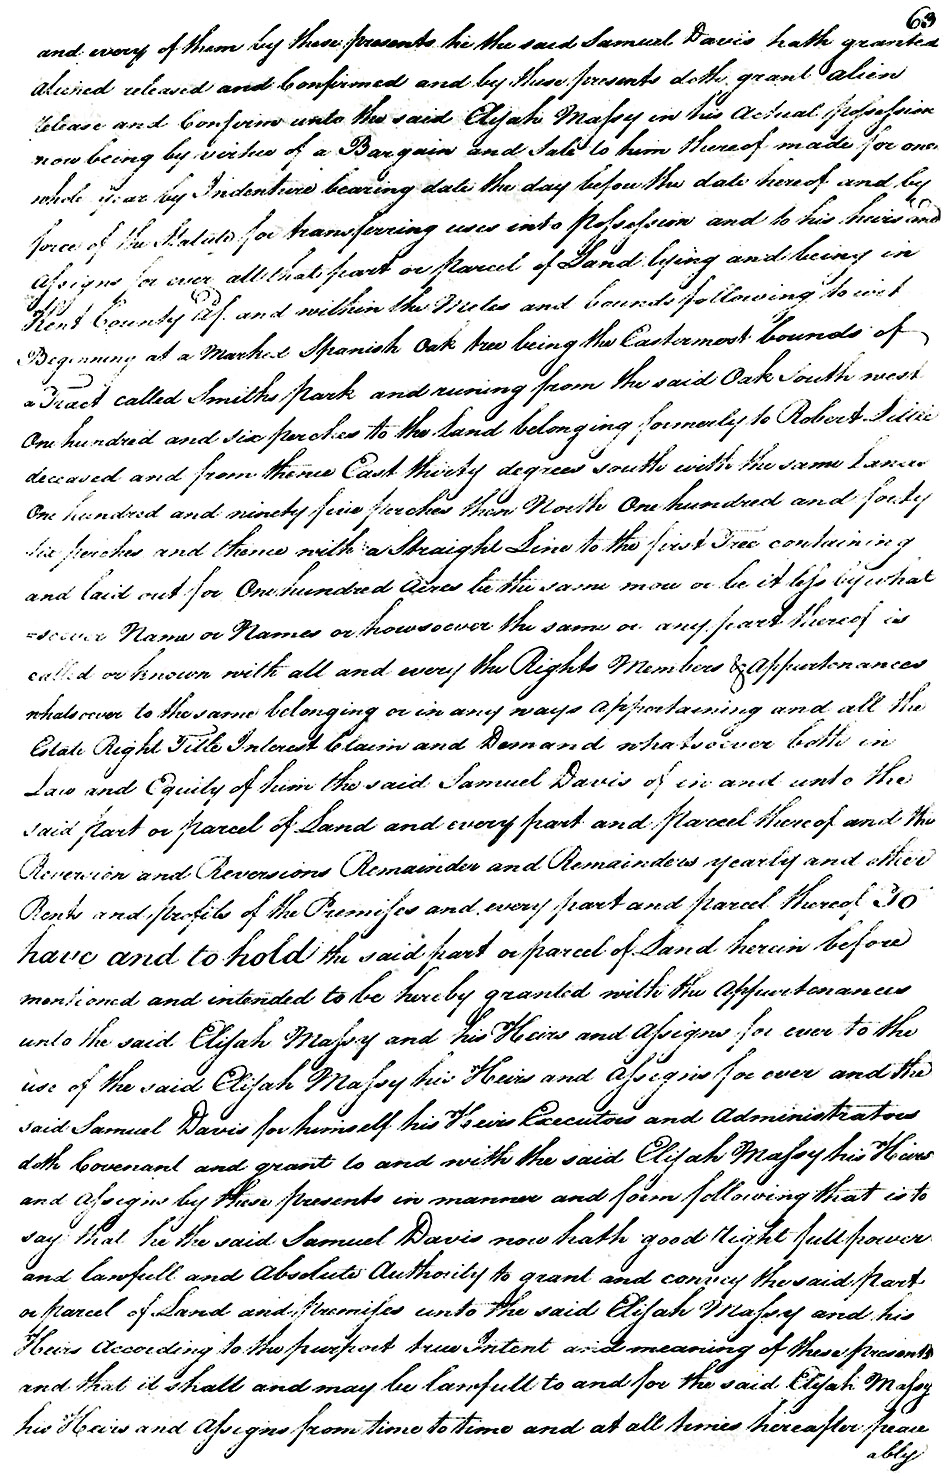 63
and every of them by these presents he the said Samuel Davis hath granted
aliened released and Confirmed and by these presents doth grant alien
release and Confirm unto the said Elijah Massy in his actual possession
now being by virtue of a Bargain and Sale to him thereof made for one
whole year by Indenture bearing date the day before the date hereof and by
force of the Statute for transferring uses into possession and to his heirs and
Assigns for ever all that part or parcel of Land lying and being in
Kent County afd. and within the Metes and bounds following to wit
Beginning at a Marked Spanish Oak tree being the Eastermost bounds of
a Tract called Smiths park and runing from the said Oak South west
One hundred and six perches to the Land belonging formerly to Robert
deceased and from thence East thirty degrees south with the same Lands
One hundred and ninety five perches then North One hundred and forty
six perches and thence with a Straight Line to the first Tree containing
and laid out for One hundred Acres be the same more or be it less by what
=soever Name or Names or howsoever the same or any part thereof is
called or known with all and every the Rights Members & Appurtenances
whatsoever to the same belonging or in any ways appertaining and all the
Estate Right Title Interest Claim and Demand whatsoever both in
Law and Equity of him the said Samuel Davis of in and unto the
said part or parcel of Land and every part and parcel thereof and the
Reversion and Reversions Remainder and Remainders yearly and other
Rents and profits of the Premises and every part and parcel thereof To
have and to hold the said part or parcel of Land herein before
mentioned and intended to be hereby granted with the Appurtenances
unto the said Elijah Massy and his Heirs and Assigns for ever to the
use of the said Elijah Massy his Heirs and Assigns for ever and the
said Samuel Davis for himself his Heirs Executors and Administrators
doth Covenant and grant to and with the said Elijah Massy his Heirs
and Assigns by these presents in manner and form following that is to
say that he the said Samuel Davis now hath good right full power
and lawfull and Absolute Authority to grant and convey the said part
or parcel of Land and premises unto the said Elijah Massy and his
Heirs According to the purport true Intent and meaning of these presents
and that it shall and may be lawfull to and for the said Elijah Massy
his Heirs and Assigns from time to time and at all times hereafter peace
ably